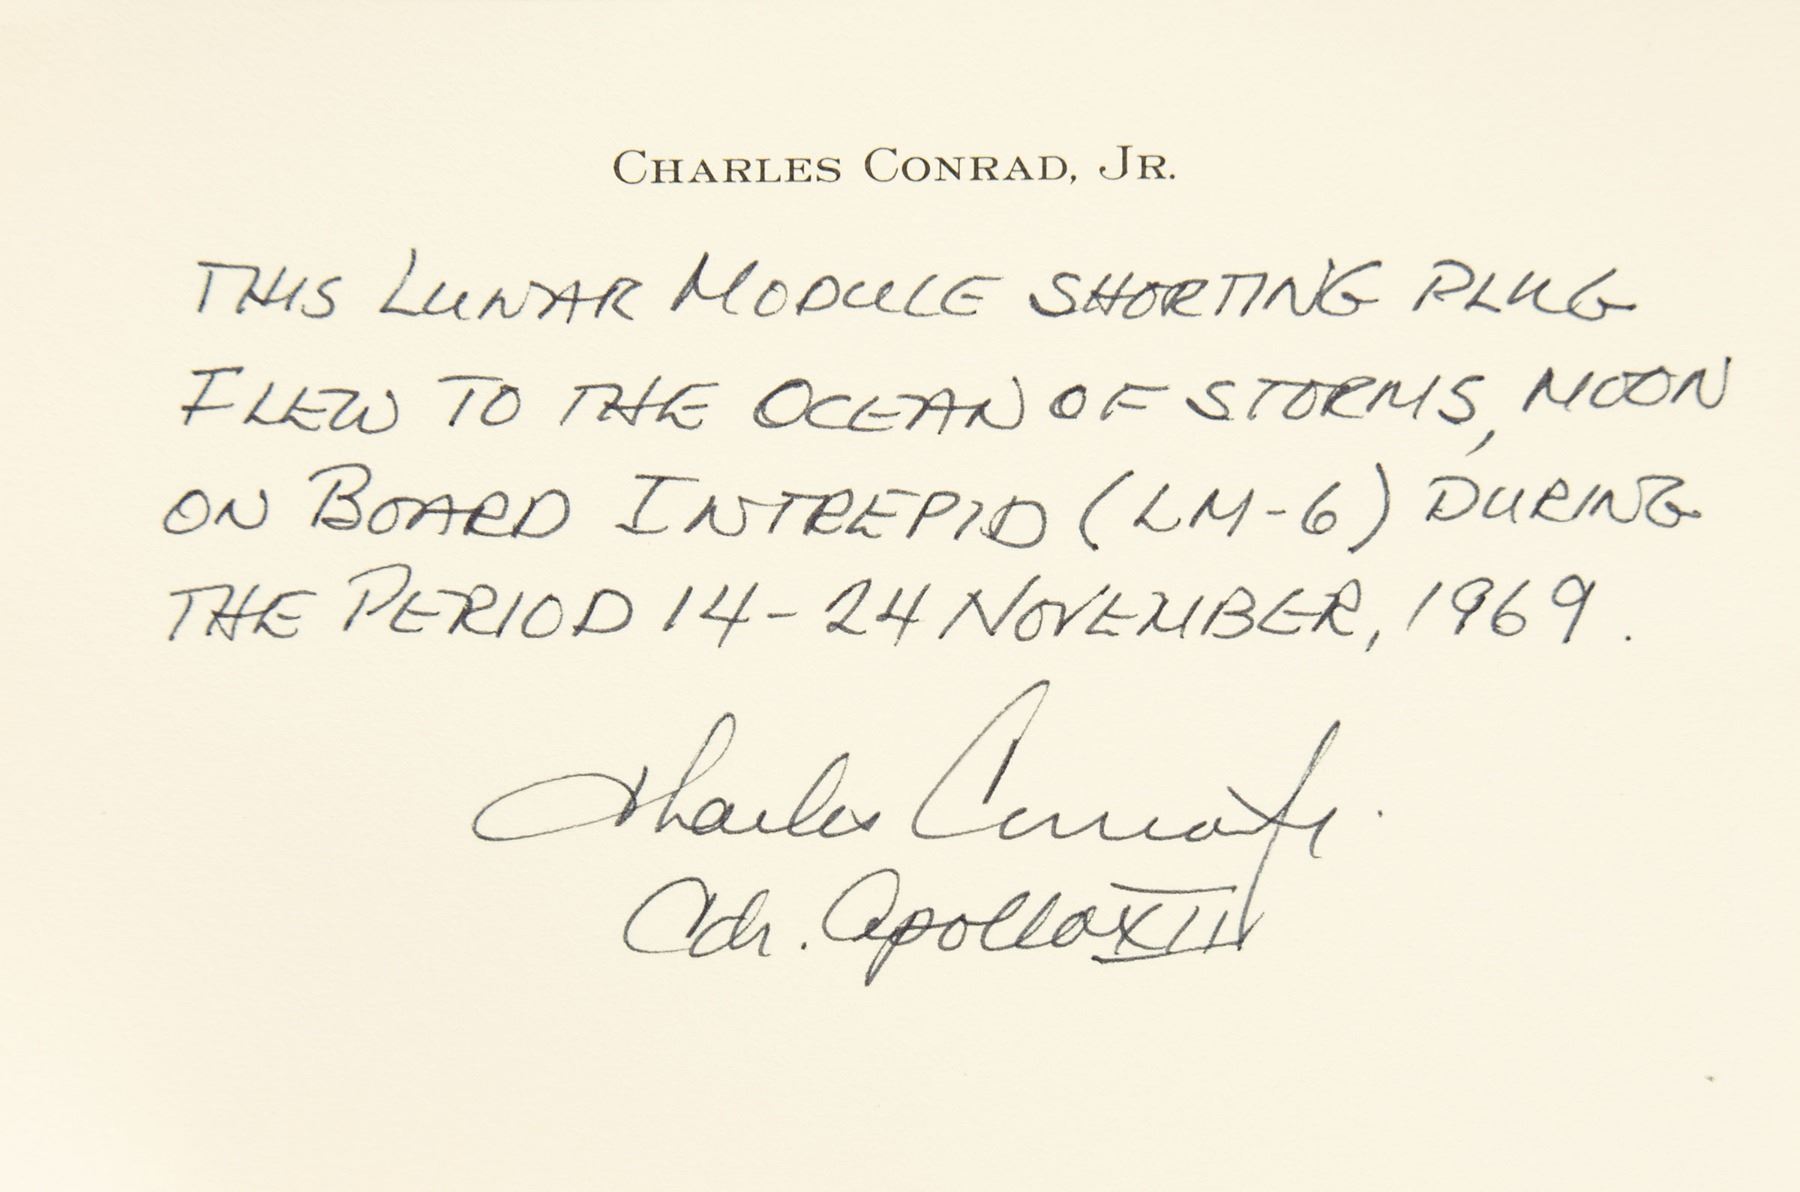 CHARLES CONRAD, JR.
THIS LUNAR MODULE SHORTING PLUG
FLEW TO THE OCEAN OF STORMS, MOON
ON BOARD INTREPID (LM-6) DURING
THE PERIOD 14-24 NOVEMBER, 1969.
Charles Conrad Jr.
Cdr. Apollo XII